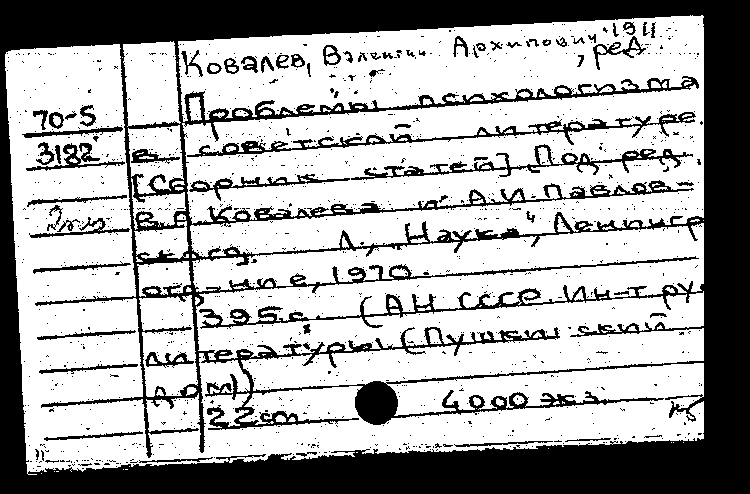 Ковалев, Валентин Архипович 1911
, ред.
70-5 Проблемы психологизма
3182 в советской литературе.
[Сборник статей]. Под ред.
В.А. Ковалева и А.И. Павлов-
ского. Л., „Наука“, Ленингр
отд-ние, 1970.
395 с. (АН СССР. Ин-т ру
литературы (Пушкинский
дом))
22 cm 4000 экз.